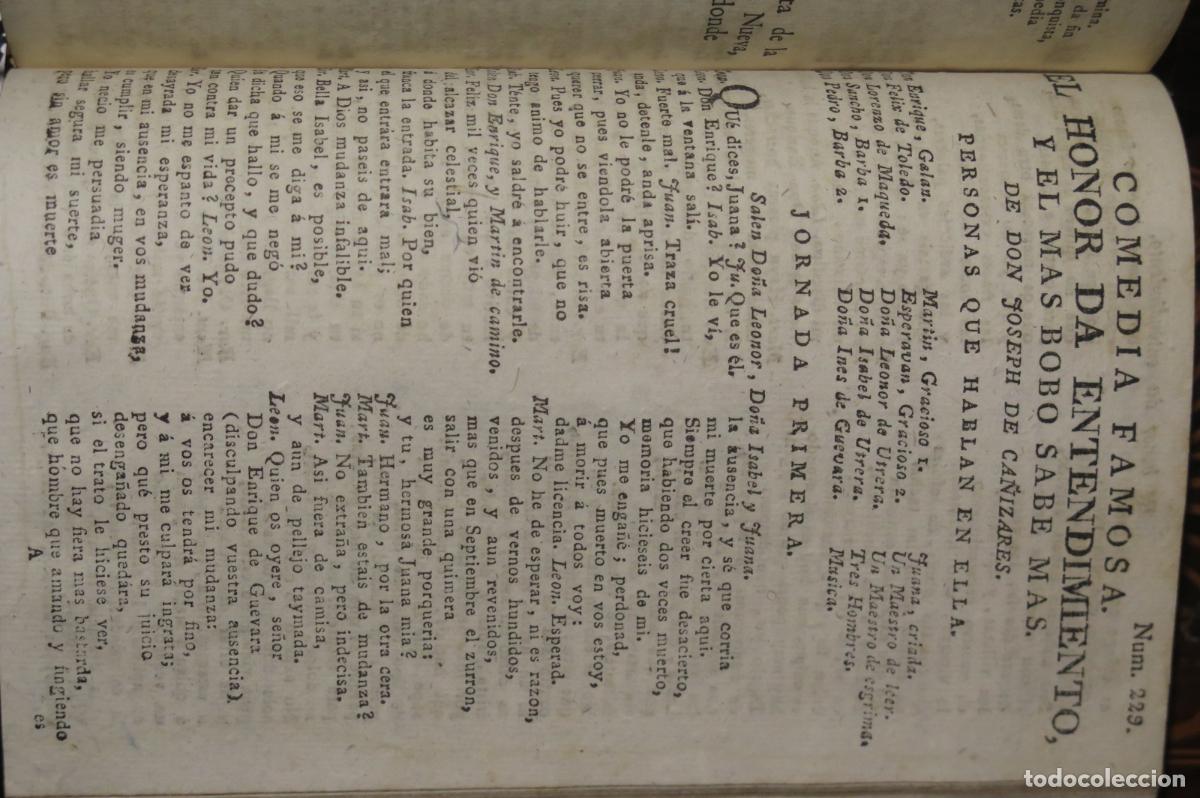 Num. 229.
COMEDIA FAMOSA.
EL HONOR DA ENTENDIMIENTO,
Y EL MAS BOBO SABE MAS.
DE DON JOSEPH DE CAÑIZARES.
PERSONAS QUE HABLAN EN ELLA.
Enrique, Galan.
Felix de Toledo.
Lorenzo de Maqueda.
Sancho, Barba 1.
Pedro, Barba 2.
Martin, Gracioso 1.
Esperavan, Gracioso 2.
Doña Leonor de Utrera.
Doña Isabel de Utrera.
Doña Ines de Guevara.
Juana, criada.
Un Maestro de leer.
Un Maestro de esgrima.
Tres Hombres.
Musica.
JORNADA PRIMERA.
Salen Doña Leonor, Doña Isabel y Juana.
QUé dices, Juana? Ju. Que es él.
Don Enrique? Isab. Yo le vi,
que á la ventana salí.
Fuerte mal. Juan. Traza cruel!
detenle, anda aprisa.
Yo no le podré la puerta
cerrar, pues viendola abierta
querer que no se entre, es risa.
Pues yo podré huir, que no
tengo animo de hablarle.
Tente, yo saldré á encontrarle.
Don Enrique, y Martin de camino.
Feliz mil veces quien vió
el alcazar celestial,
donde habita su bien,
nunca la entrada. Isab. Por quien
que entrára entrara mal;
y asi, no paseis de aqui.
A Dios mudanza infalible.
bella Isabel, es posible,
que eso se me diga á mi?
Quando á mi se me negó
la dicha que hallo, y que dudo?
Quien dar un precepto pudo
contra mi vida? Leon. Yo.
Yo no me espanto de ver
mi esperanza,
que en mi ausencia, en vos mudanza,
cumplir, siendo muger.
necio me persuadia
segura mi suerte,
que sin amor es muerte
la ausencia, y sé que corria
mi muerte por cierta aqui.
Siempre el creer fue desacierto,
que habiendo dos veces muerto,
memoria hicieseis de mi.
Yo me engañè; perdonad,
que pues muerto en vos estoy,
á morir á todos voy:
dadme licencia. Leon. Esperad.
Mart. No he de esperar, ni es razon,
despues de vernos hundidos,
venidos, y aun revenidos,
mas que en Septiembre el zurron,
salir con una quimera
es muy grande porqueria:
y tu, hermosa Juana mia?
Juan. Hermano, por la otra cera.
Mart. Tambien estais de mudanza?
Juan. No extraña, pero indecisa.
Mart. Asi fuera de camisa,
y aun de pellejo taymada.
Leon. Quien os oyere, señor
Don Enrique de Guevara
(disculpando vuestra ausencia)
encarecer mi mudanza:
á vos os tendrá por fino,
y á mi me culpará ingrata;
pero qué presto su juicio
desengañado quedára,
si el trato le hiciese ver,
que no hay fiera mas bastarda,
que hombre que amando y fingiendo
A
es
ta de la
Nueva,
donde
todocoleccion